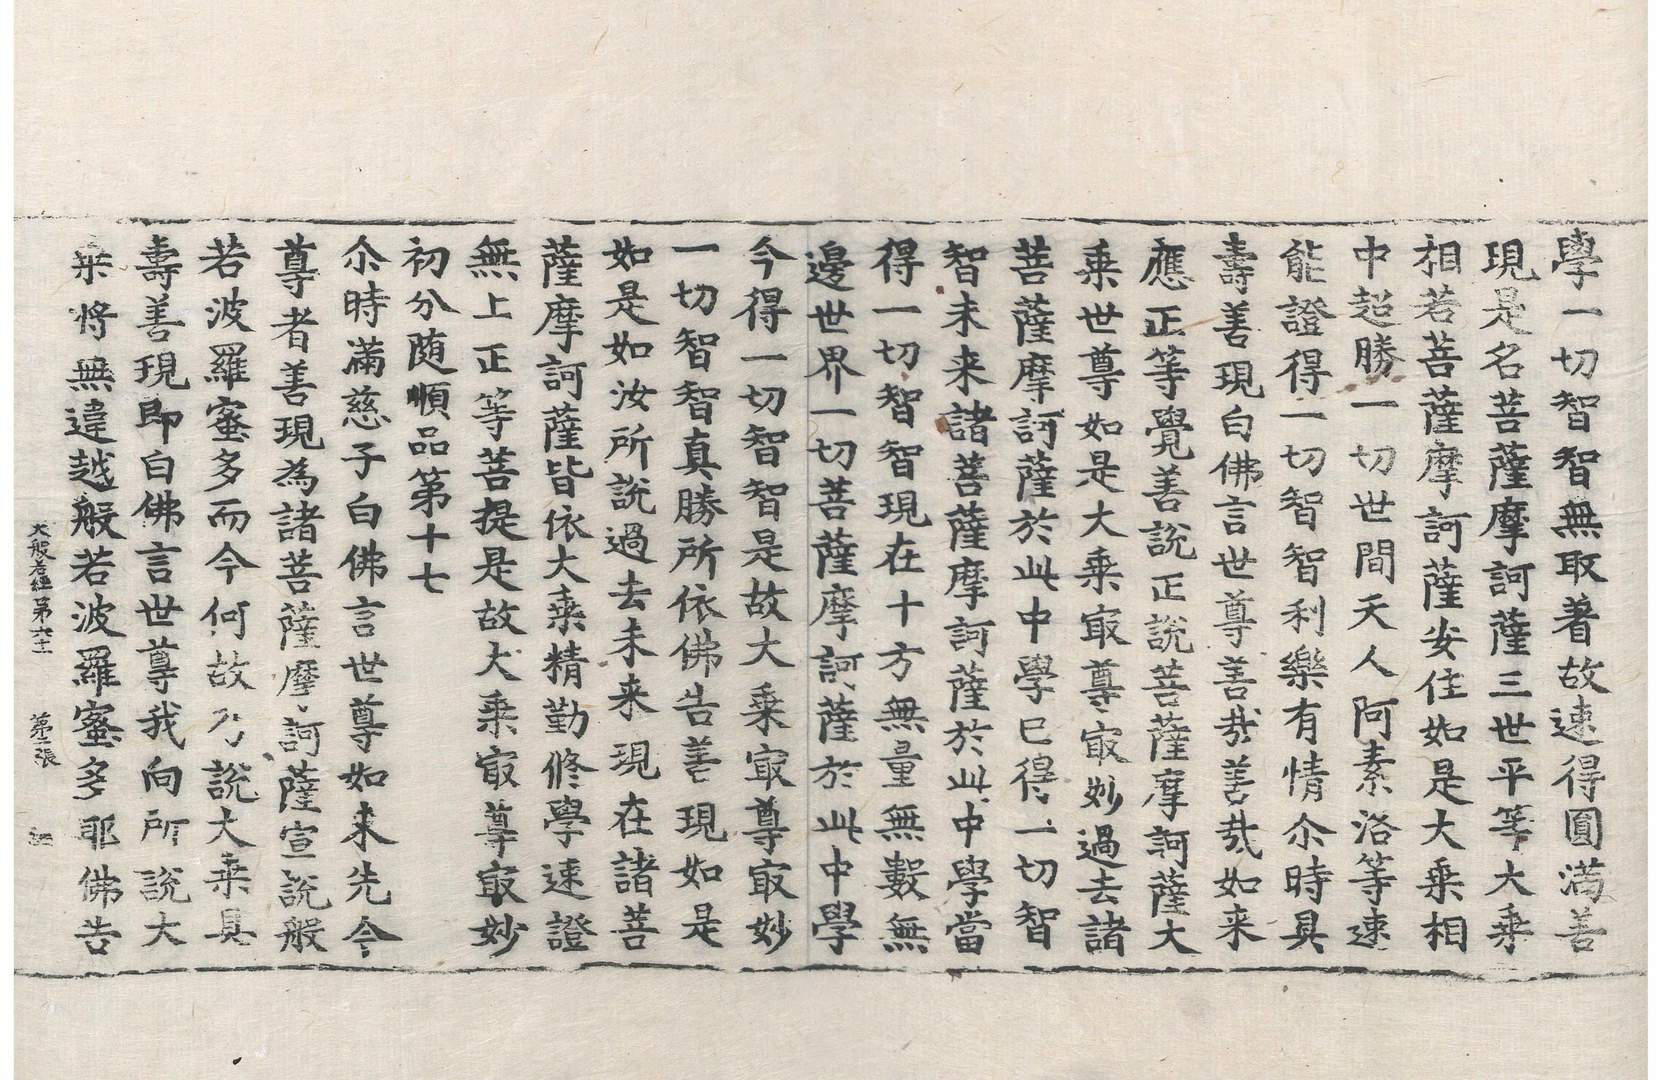 學一切智智無取著故速得圓滿善
現是名菩薩摩訶薩三世平等大乗
相若菩薩摩訶薩安住如是大乗相
中超勝一切世間天人阿素洛等速
能證得一切智智利樂有情尒時具
壽善現白佛言世尊善哉善哉如来
應正等覺善說正說菩薩摩訶薩大
乗世尊如是大乗㝡尊㝡妙過去諸
菩薩摩訶薩於此中學已得一切智
智未来諸菩薩摩訶薩於此中學當
得一切智智現在十方無量無數無
邊世界一切菩薩摩訶薩於此中學
今得一切智智是故大乗㝡尊㝡妙
一切智智真勝所依佛告善現如是
如是如汝所說過去未来現在諸菩
薩摩訶薩皆依大乗精勤修學速證
無上正等菩提是故大乗㝡尊㝡妙
初分随順品第十七
尒時滿慈子白佛言世尊如来先令
尊者善現為諸菩薩摩訶薩宣說般
若波羅蜜多而今何故乃說大乗具
壽善現即白佛言世尊我向所說大
乗将無違越般若波羅蜜多耶佛告
大般若經第六十一 第二張